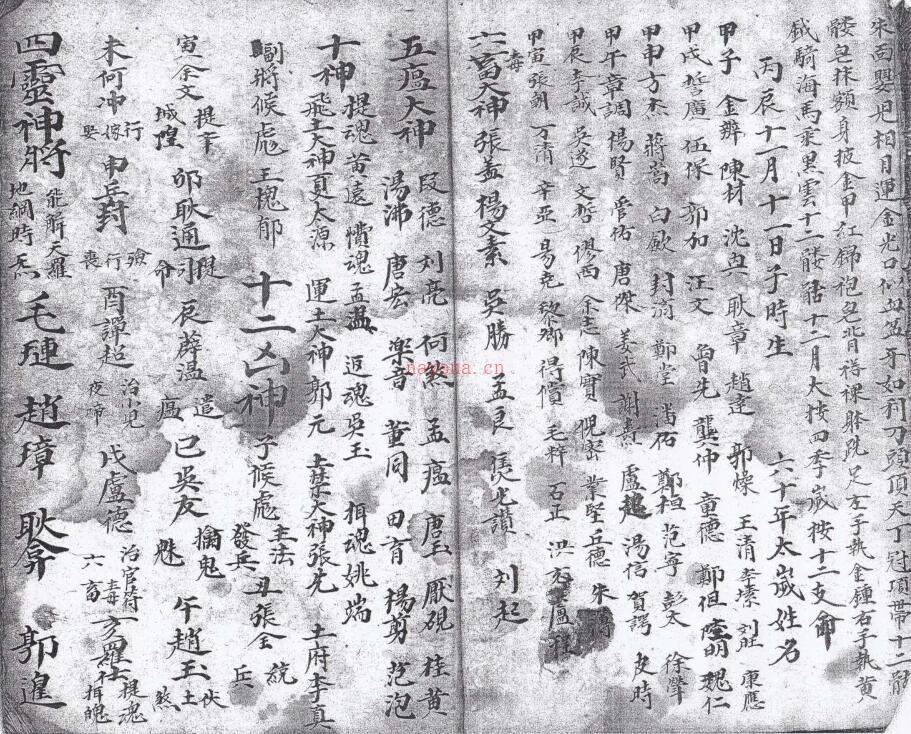 朱面嬰児相月運金光口似血盆牙如利刀頭頂天丁冠項帶十二骷
髅皂抹額身披金甲紅錦袍皂背褡裸躰跣足左手執金鍾右手執黄
鉞騎海馬乘黒雲十二髅骷十二月大技四季歳按十二支命
丙辰十一月十一日子時生 六十年太歳姓名
甲子 金辨 陳材 沈 耿章 趙達 郭燥 王清 李 刘旺 康應
甲戌誓廣 伍保 郭加 汪文 魯先 龔仲 童德 鄭但 陸明 魏仁
甲申方杰 蔣嵩 白歃 封済 鄭堂 潘佑 鄭桓 范寧 彭太 徐瀅
甲午章詞 楊賢 管佑 唐傑 姜武 謝燾 盧超 湯信 賀諤 皮時
甲辰李誠 吳遂 文哲 僇丙 余志 陳寳 猊密 業堅 丘德 朱
甲寅張朝 万清 辛亞 易尭 黎卿 得償 毛梓 石正 洪充 盧程
六畜毒大神 張盖 楊文素 吳勝 孟良 吳光讃 刘起
五瘟大神 段德 刘亮 何煞 孟瘟 唐玉 厭硯 桂黄
湯沸 唐宏 樂音 董同 田育 楊剪 范泡
十神 提魂黄遠 憤魂孟 返魂吳玉 揖魂姚端
飛土大神頁太源 運土大神郭元 土葉大神張先 土府李真
副將候彪 王槐郁 十二凶神 子候彪 主法發兵 丑張全 統兵
寅余文 提牢城隍 卯耿通 提司命 辰薛温 遣瘟 巳吳友 擒鬼魁 午趙玉 伏土煞
未何冲 行嫁娶 申兵封 殮行喪 酉譚起 治小児夜啼 戌盧德 治官符毒六畜 亥羅任 提魂揖魄
四靈神將 能解天羅地網時炁 毛璉 趙璋 耿弇 郭遑
nayona.cn